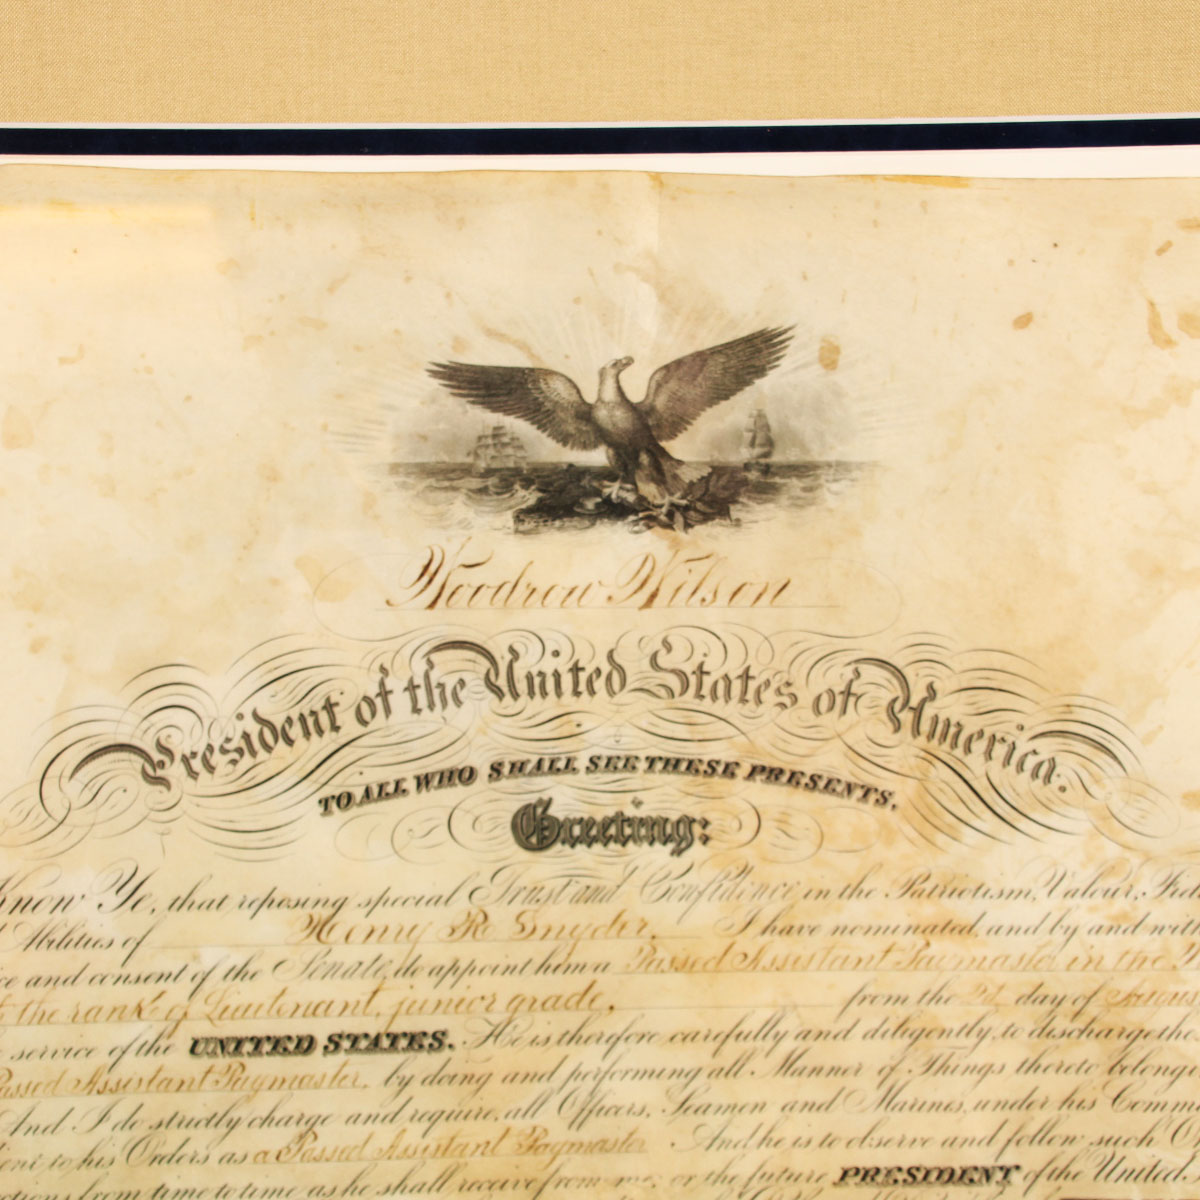 Woodrow Wilson
President of the United States of America.
TO ALL WHO SHALL SEE THESE PRESENTS,
Greeting:
Know Ye, that reposing special Trust and Confidence in the Patriotism, Valour,
Abilities of Henry R. Snyder, I have nominated, and by and with
and consent of the Senate, do appoint him a Passed Assistant Paymaster in the
the rank of Lieutenant, junior grade, from the 2d day of
service of the UNITED STATES. He is therefore carefully and diligently to discharge the
Passed Assistant Paymaster, by doing and performing all Manner of Things thereto
And I do strictly charge and require all Officers, Seamen and Marines, under his
to his Orders as a Passed Assistant Paymaster. And he is to observe and follow such
from time to time as he shall receive from me, or the future PRESIDENT of the United